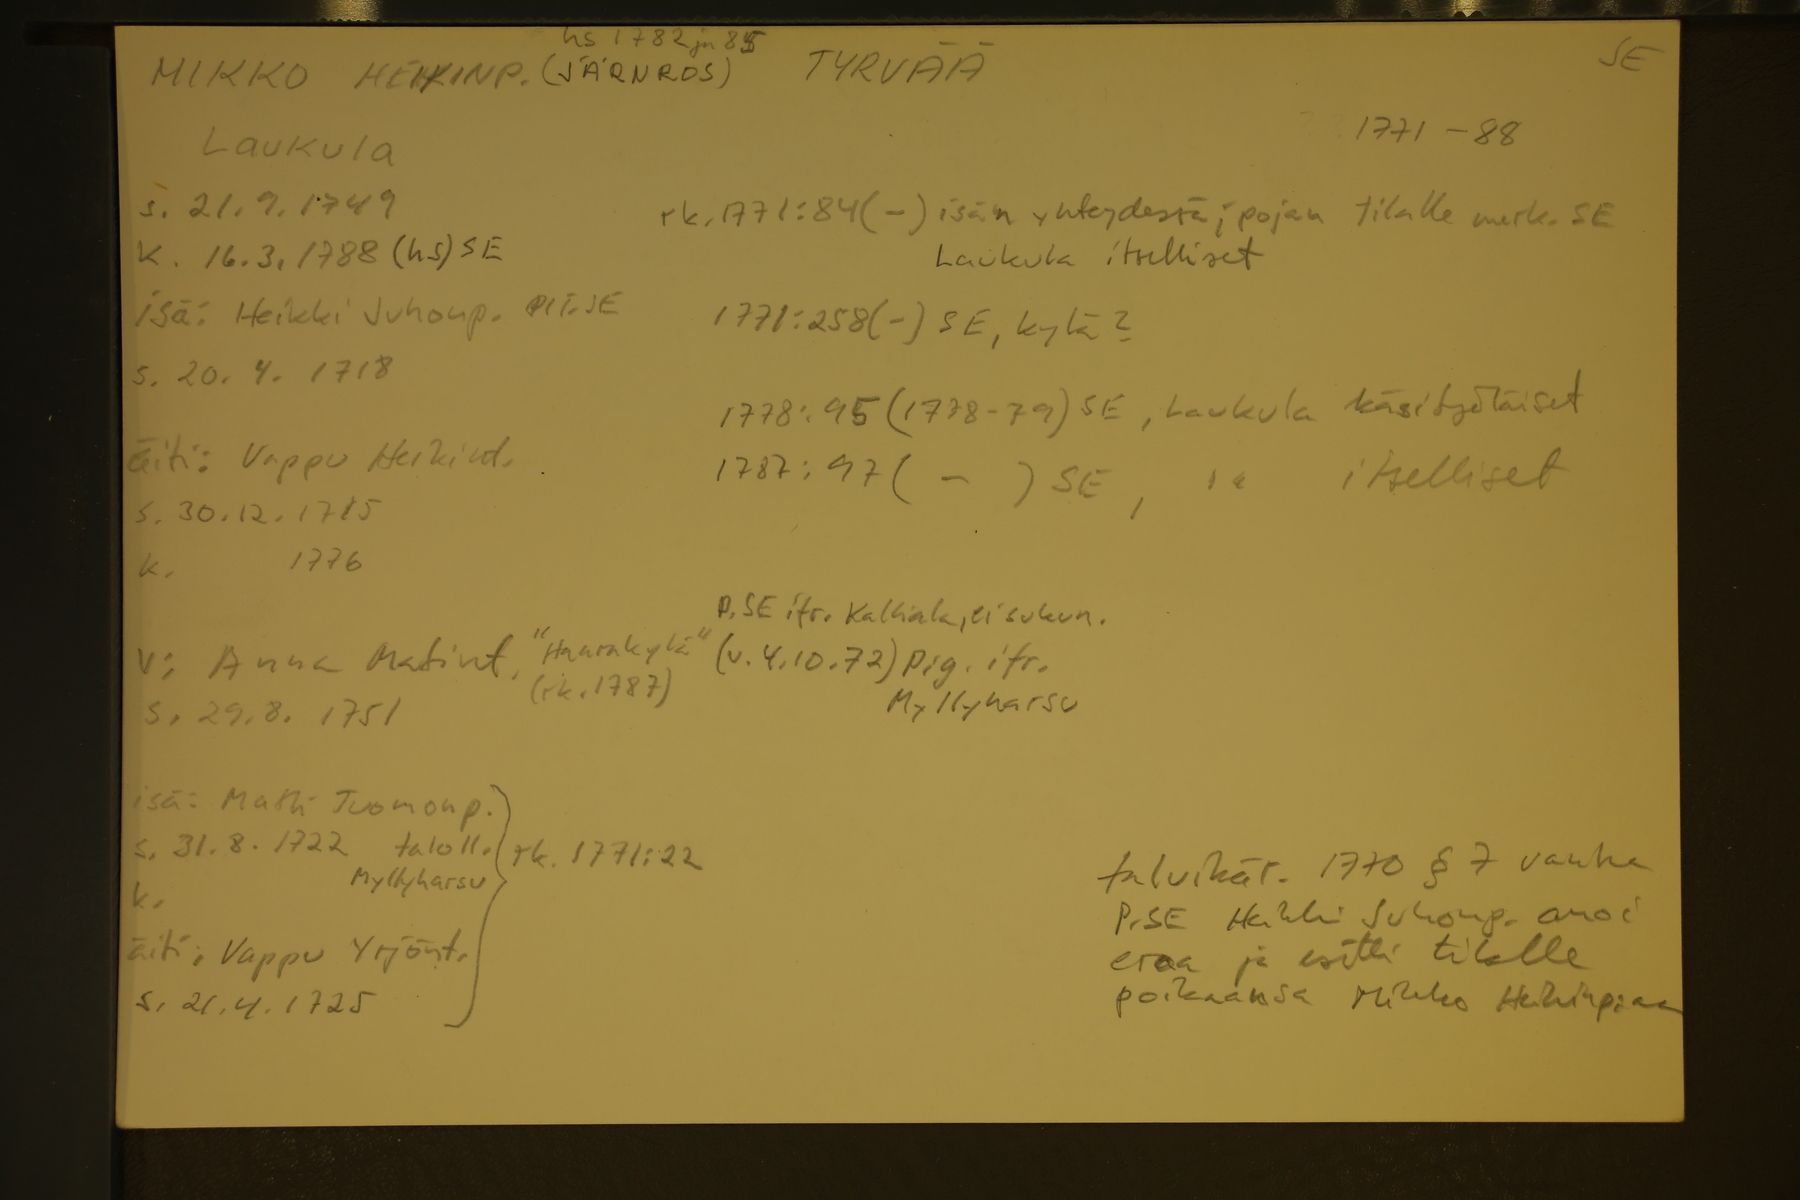 hs 1782 ja 85
MIKKO HEIKINP. (JÄRNROS) TYRVÄÄ SE
Laukula
1771 - 88
s. 21.9.1749
k. 16.3.1788 (hs) SE
rk. 1771:84 (-) isän yhteydessä; pojan tilalle merk. SE
Laukula itselliset
isä: Heikki Juhonp. SE
s. 20.4. 1718
1771:258 (-) SE, kylä?
1778:95 (1778-79) SE, Laukula käsityöläiset
äiti: Vappu Heikint.
s. 30.12.1715
k. 1776
1787:97 ( - ) SE, " itselliset
P.SE itr. Kalliala, ei sukun.
v: Anna Matint. "Haurakylä" (v. 4.10.72) pig. itr.
(rk. 1787) Myllyharsu
s. 29.8. 1751
isä: Matti Tuomonp.
s. 31.8. 1722 taloll. rk. 1771:22
Myllyharsu
k.
äiti: Vappu Yrjönt.
s. 21.4.1725
talvikär. 1770 § 7 vanha
P.SE Heikki Juhonp. anoi
eroa ja esitti tilalle
poikaansa Mikko Heikinp:aa